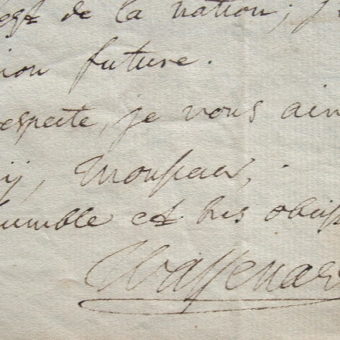 de la nation; j
ion future.
especte, je vous aim
ij, Monsieur,
humble et très obéiss
Wassenaer